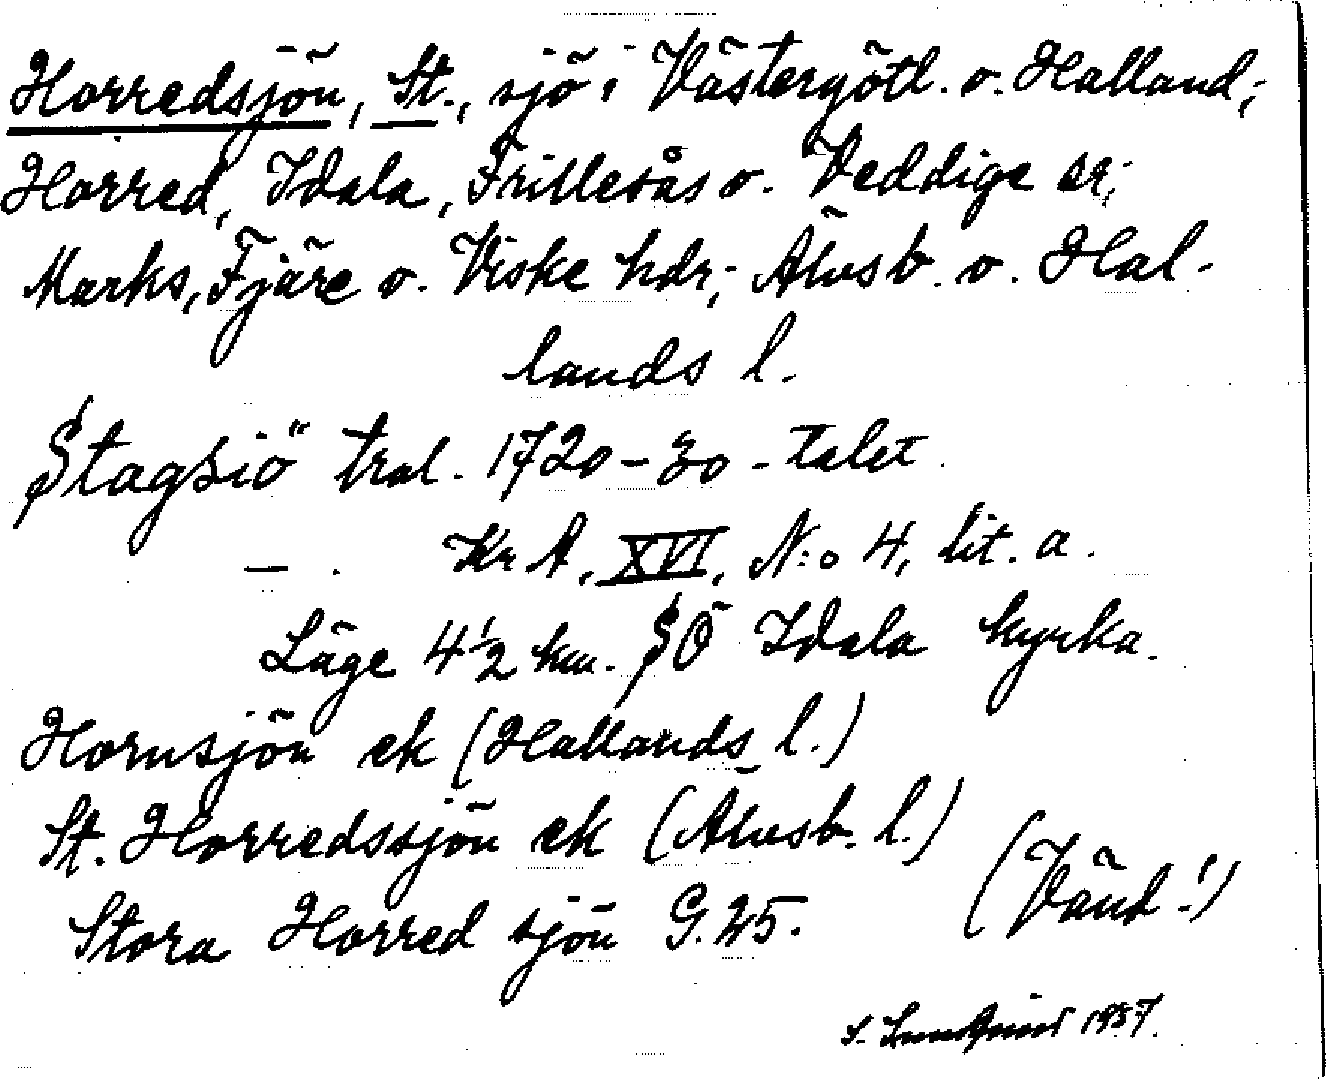 Horredsjön, St., sjö i Västergötl. o. Halland;
Horred, Idala, Frillesås o. Veddige sr;
Marks, Fjäre o. Viske hdr; Älvsb. o. Hal-
lands l.
Stagsiö" trol. 1720-30-talet.
— . Kr A, XVI, N:o 4, lit. a.
Läge 4 1/2 km. SÖ Idala kyrka.
Hornsjön ek (Hallands l.)
St. Horredssjön ek (Älvsb. l.)
Stora Horred sjön G.25.
(Vänd!)
S. Lundqvist 1937.